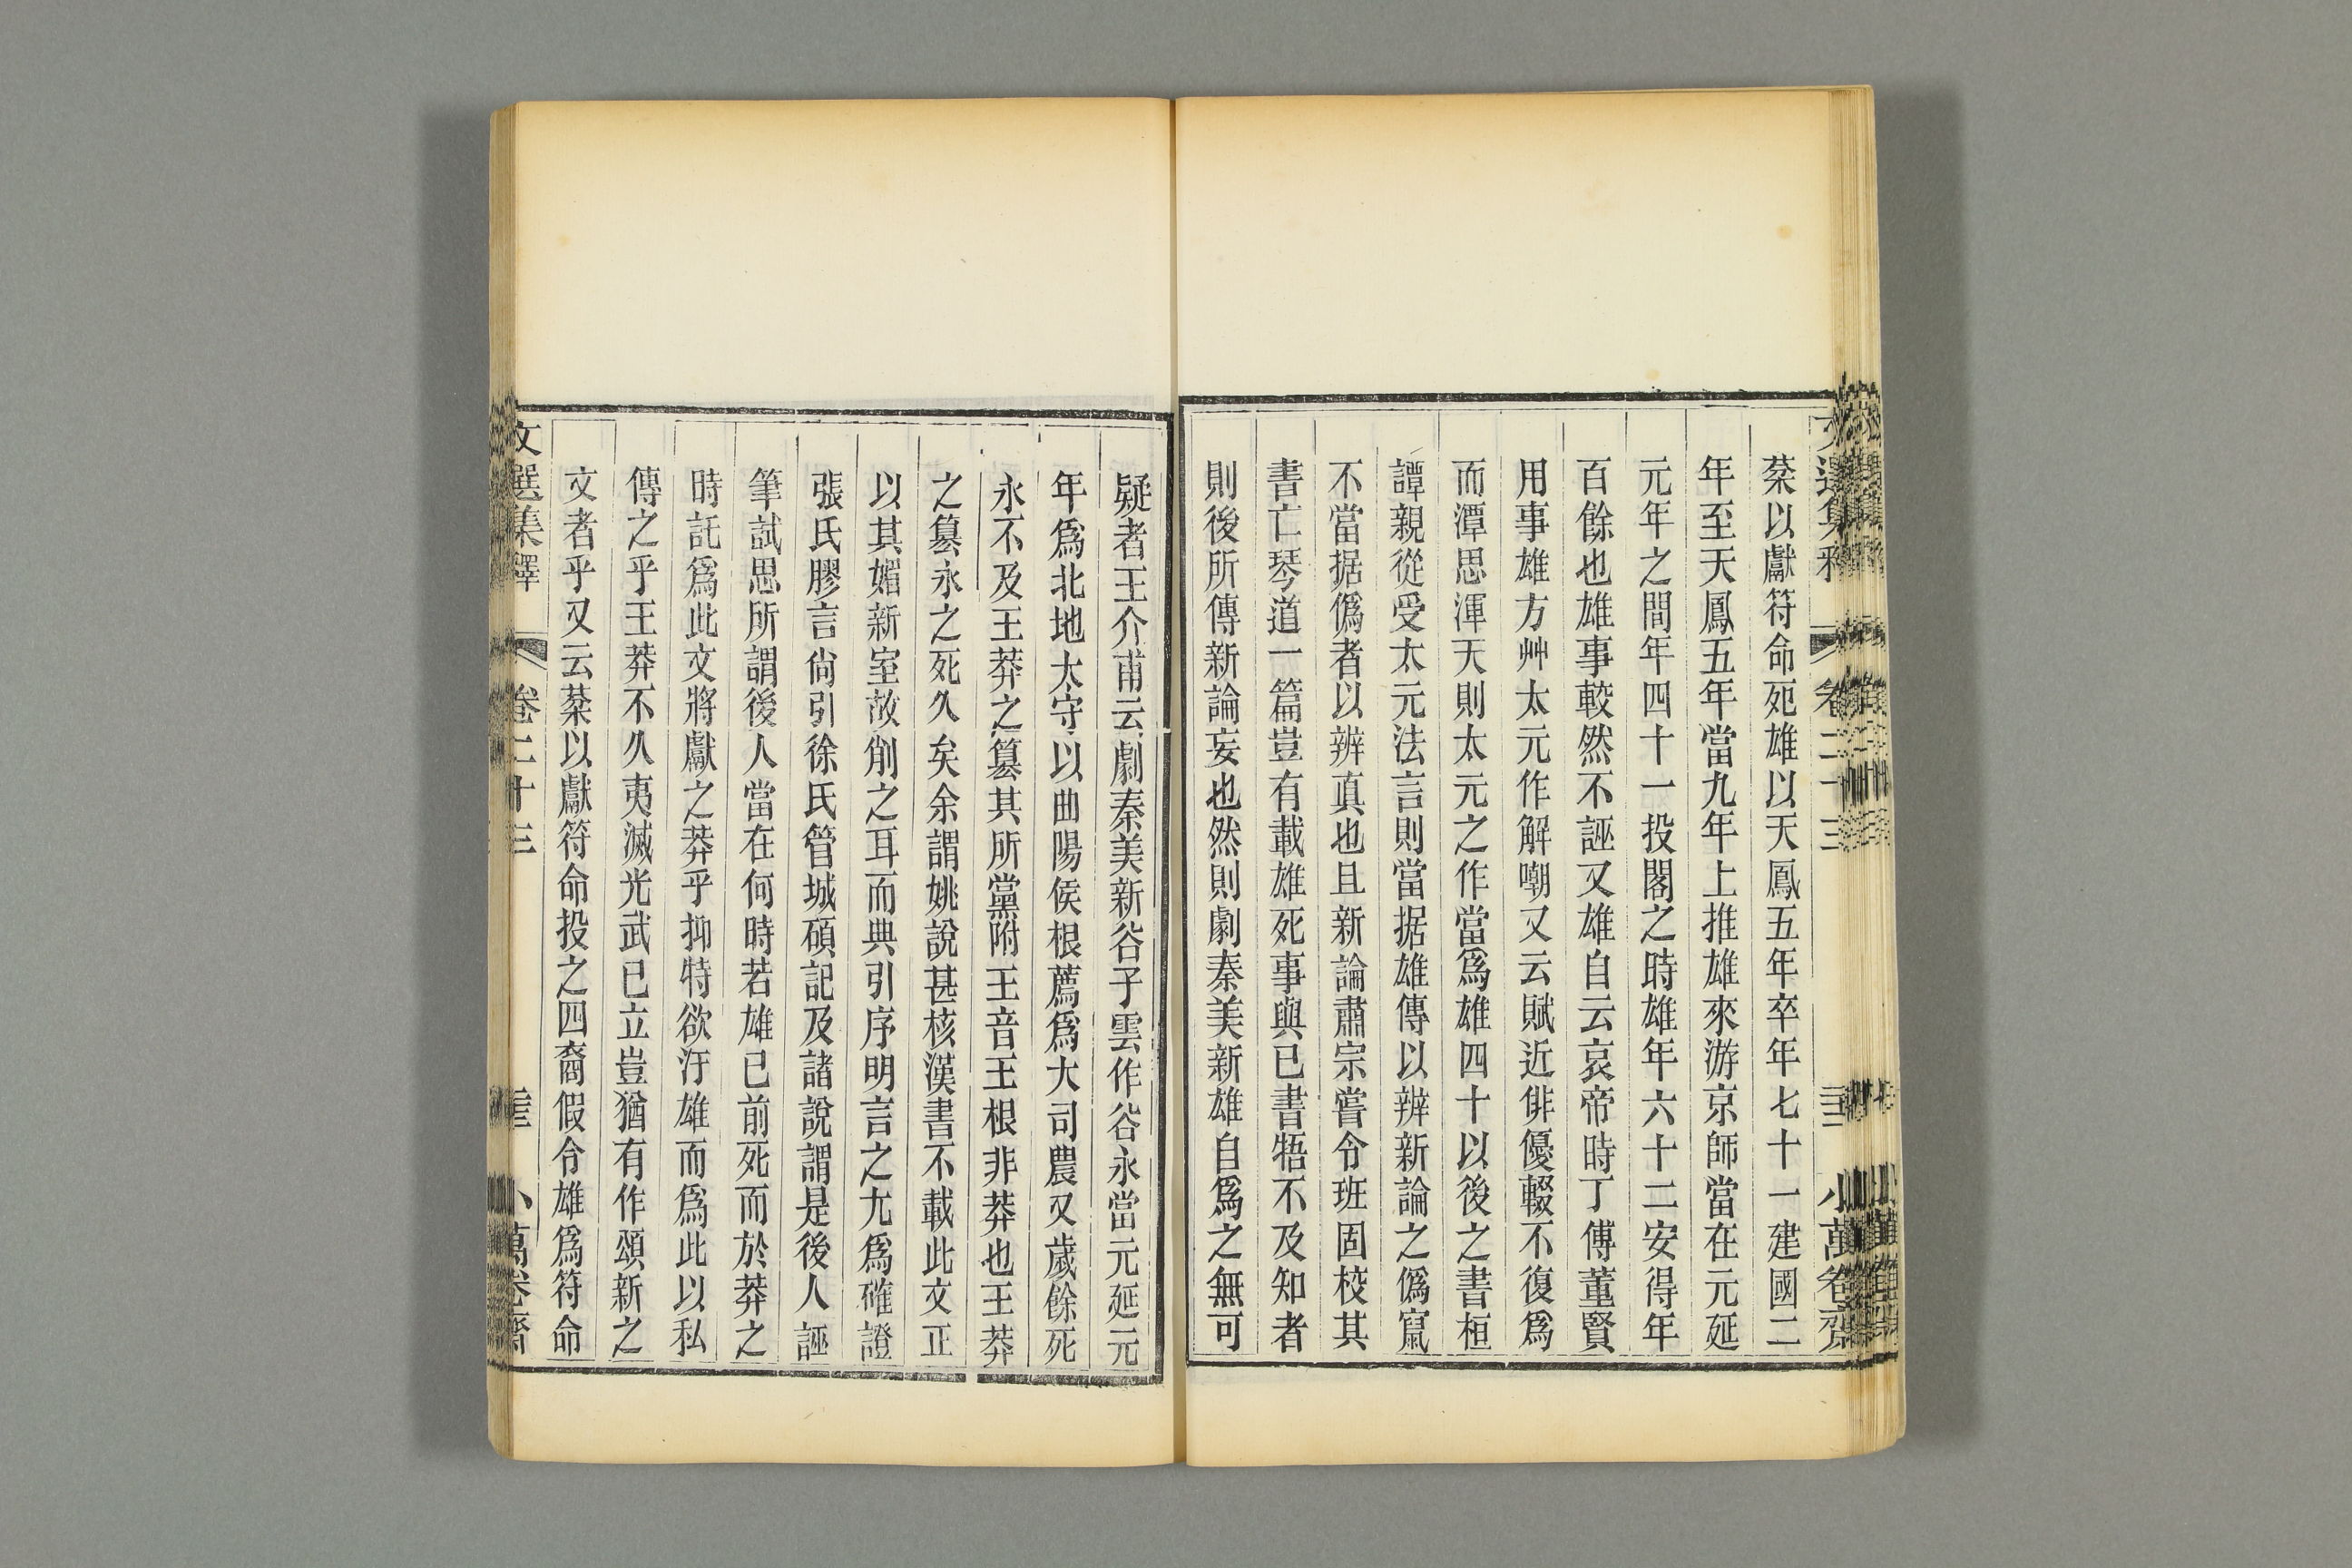 棻以獻符命死雄以天鳳五年卒年七十一建國二
年至天鳳五年當九年上推雄來游京師當在元延
元年之間年四十一投閣之時雄年六十二安得年
百餘也雄事較然不誣又雄自云哀帝時丁傅董賢
用事雄方艸太元作解嘲又云賦近俳優輟不復爲
而潭思渾天則太元之作當爲雄四十以後之書桓
譚親從受太元法言則當据雄傳以辨新論之僞竄
不當据僞者以辨真也且新論肅宗嘗令班固校其
書亡琴道一篇豈有載雄死事與已書牾不及知者
則後所傳新論妄也然則劇秦美新雄自爲之無可
疑者王介甫云劇秦美新谷子雲作谷永當元延元
年爲北地太守以曲陽侯根薦爲大司農又歲餘死
永不及王莽之篡其所黨附王音王根非莽也王莽
之篡永之死久矣余謂姚說甚核漢書不載此文正
以其媚新室故削之耳而典引序明言之尤爲確證
張氏膠言尙引徐氏管城碩記及諸說謂是後人誣
筆試思所謂後人當在何時若雄已前死而於莽之
時託爲此文將獻之莽乎抑特欲汙雄而爲此以私
傳之乎王莽不久夷滅光武已立豈猶有作頌新之
文者乎又云棻以獻符命投之四裔假令雄爲符命
文選集釋 卷二十三 小萬卷齋